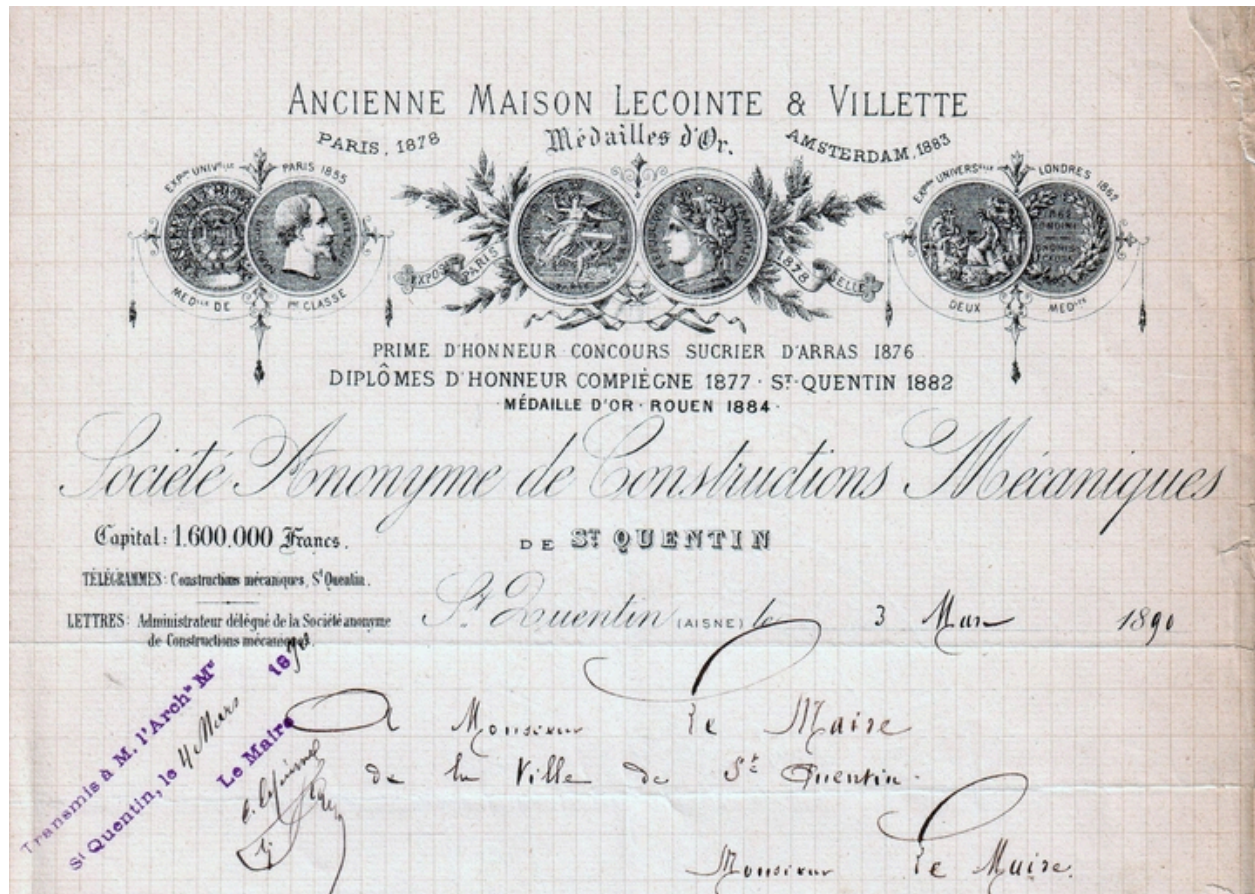 ANCIENNE MAISON LECOINTE & VILLETTE
PARIS, 1878
Médailles d'Or.
AMSTERDAM, 1883
EXP^on UNIV^elle PARIS 1855
MED^lle DE 1^re CLASSE
EXPOS PARIS 1878 SELLE
EXP^on UNIVERS^elle LONDRES 1862
DEUX MED^lles
PRIME D'HONNEUR CONCOURS SUCRIER D'ARRAS 1876
DIPLÔMES D'HONNEUR COMPIÈGNE 1877 · S^T-QUENTIN 1882
· MÉDAILLE D'OR · ROUEN 1884 ·
Société Anonyme de Constructions Mécaniques
DE S^T QUENTIN
Capital: 1.600.000 Francs.
TÉLÉGRAMMES: Constructions mécaniques, S^t Quentin.
LETTRES: Administrateur délégué de la Société anonyme
de Constructions mécaniques.
S^t Quentin (AISNE) le 3 Mars 1890
Transmis à M. l'Arch^te M^al
S^t Quentin, le 4 Mars 1890
Le Maire
A Monsieur le Maire
de la Ville de S^t Quentin.
Monsieur le Maire.